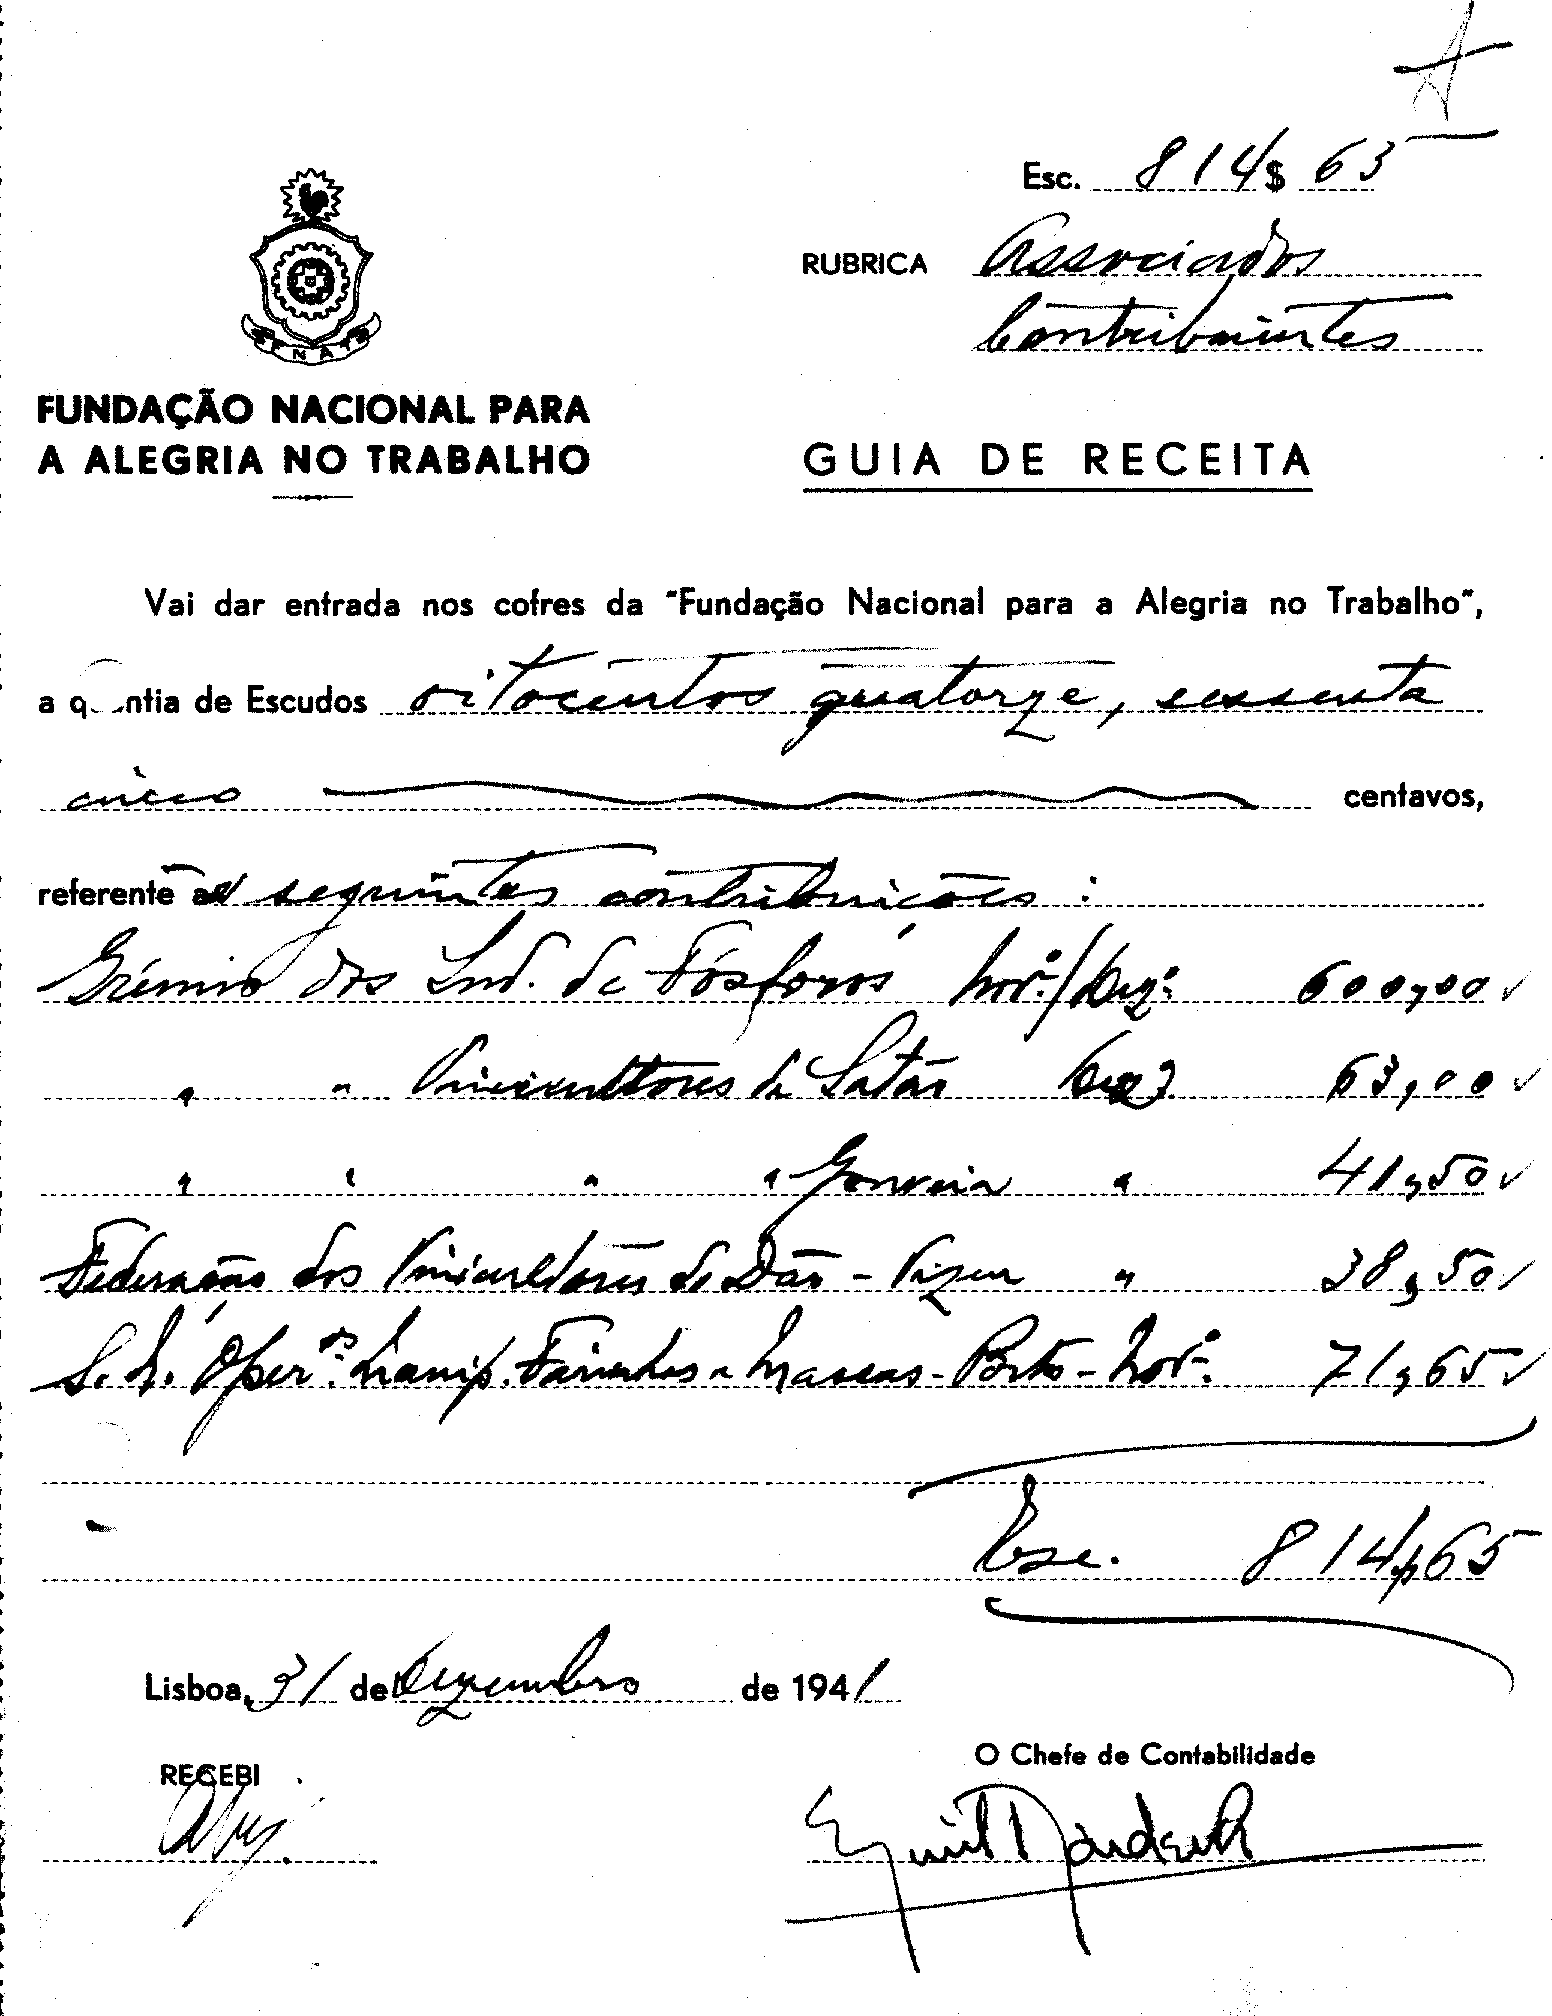 Esc. 814$65
RUBRICA Associados
Contribuintes
FNAT
FUNDAÇÃO NACIONAL PARA
A ALEGRIA NO TRABALHO
GUIA DE RECEITA
Vai dar entrada nos cofres da "Fundação Nacional para a Alegria no Trabalho",
a quantia de Escudos oitocentos quatorze, sessenta
cinco centavos,
referente às seguintes contribuições:
Grémio dos Ind. de Fósforos Nov.º/Dez.º 600,00
" " Vinicultores de Satão Dezº 63,00
" " " " Gouveia " 41,50
Federação dos Vinicultores do Dão - Vizeu " 38,50
S. N. Oper.os Manip. Farinhas e Massas - Porto - Nov.º 71,65
Esc. 814$65
Lisboa, 31 de Dezembro de 1941
RECEBI
O Chefe de Contabilidade